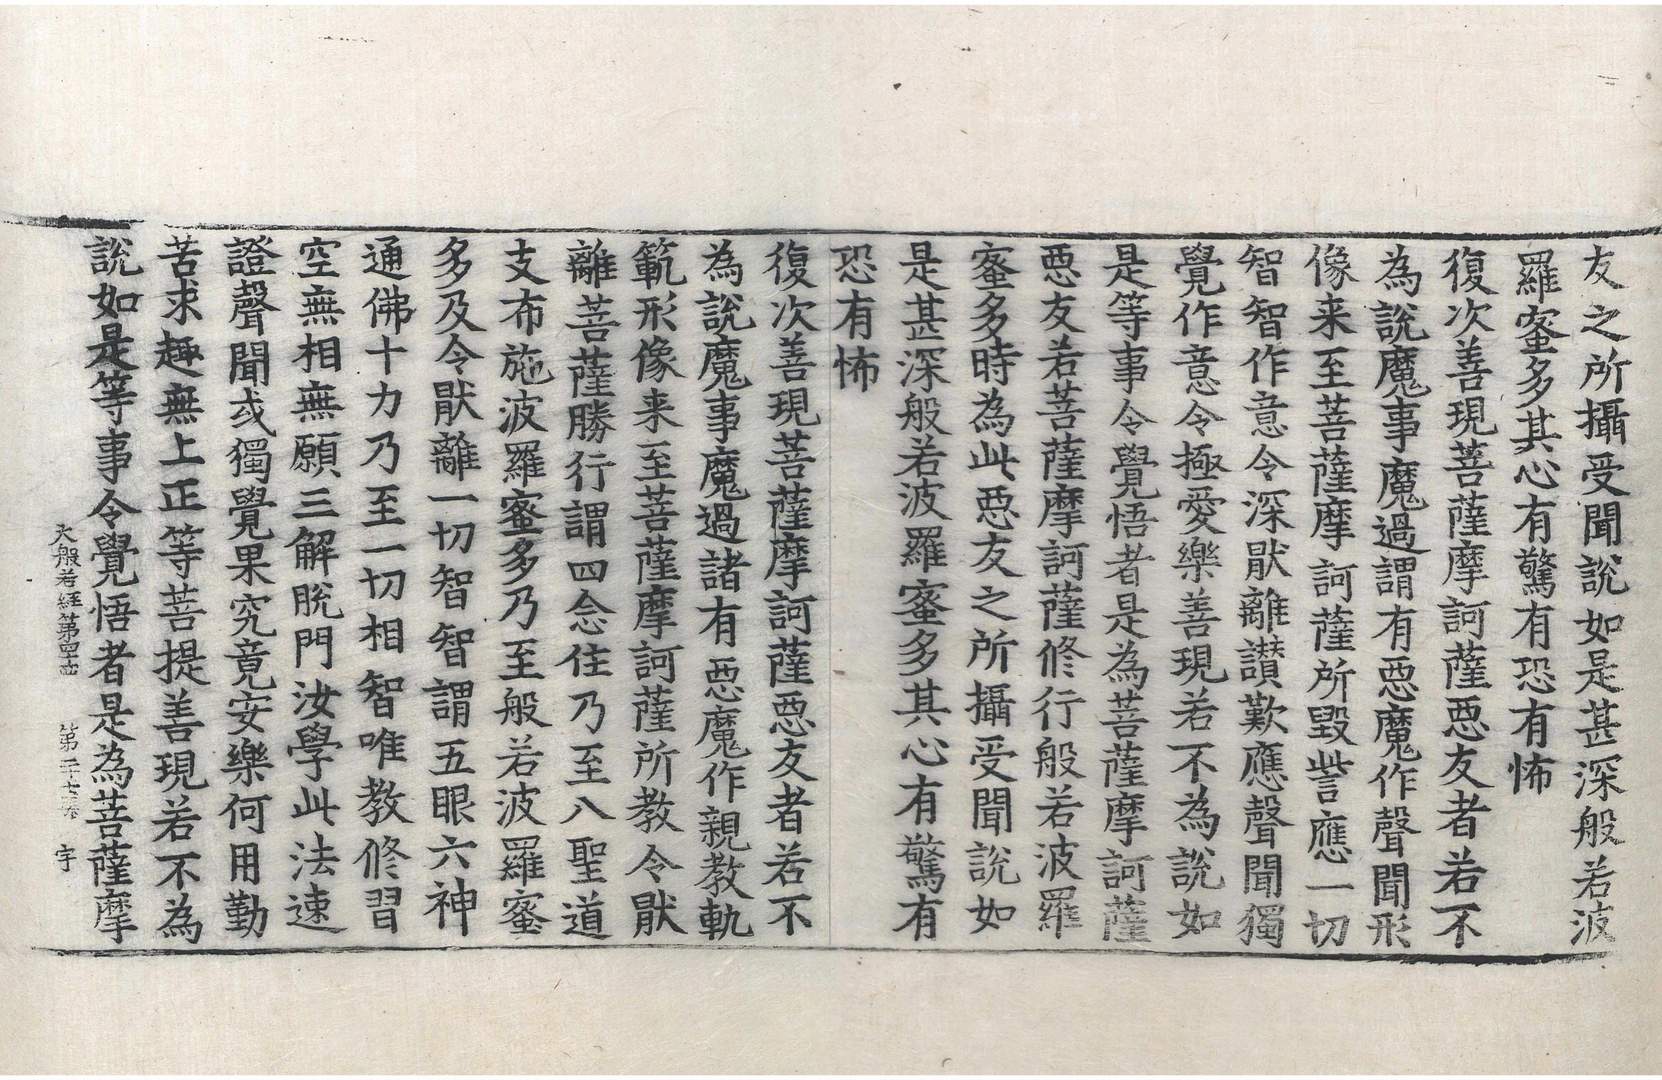 友之所攝受聞說如是甚深般若波
羅蜜多其心有驚有恐有怖
復次善現菩薩摩訶薩惡友者若不
為說魔事魔過謂有惡魔作聲聞形
像来至菩薩摩訶薩所毀訾應一切
智智作意令深猒離讚歎應聲聞獨
覺作意令極愛樂善現若不為說如
是等事令覺悟者是為菩薩摩訶薩
惡友若菩薩摩訶薩修行般若波羅
蜜多時為此惡友之所攝受聞說如
是甚深般若波羅蜜多其心有驚有
恐有怖
復次善現菩薩摩訶薩惡友者若不
為說魔事魔過諸有惡魔作親教軌
範形像来至菩薩摩訶薩所教令猒
離菩薩勝行謂四念住乃至八聖道
支布施波羅蜜多乃至般若波羅蜜
多及令猒離一切智智謂五眼六神
通佛十力乃至一切相智唯教修習
空無相無願三解脫門汝學此法速
證聲聞或獨覺果究竟安樂何用勤
苦求趣無上正等菩提善現若不為
說如是等事令覺悟者是為菩薩摩
大般若經第四十四 第二十七張 宇